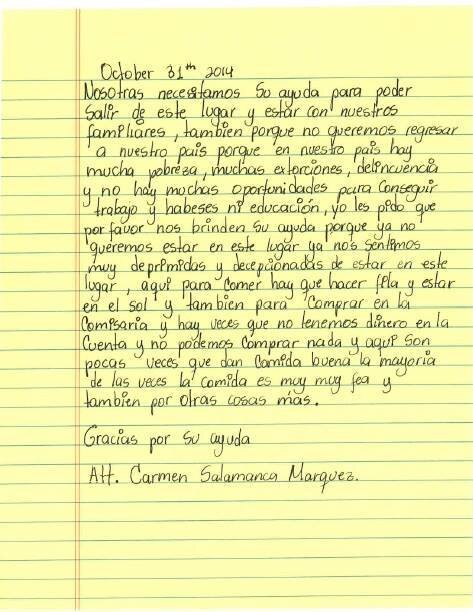 October 31th 2014
Nosotras necesitamos Su ayuda para poder
Salir de este lugar y estar con nuestros
familiares, tambien porque no queremos regresar
a nuestro pais porque en nuestro pais hay
mucha pobreza, muchas extorciones, delincuencia
y no hay muchas oportunidades para Conseguir
trabajo y habeses ni educación, yo les pido que
por favor nos brinden Su ayuda porque ya no
queremos estar en este lugar ya nos Sentimos
muy deprimidas y decepcionadas de estar en este
lugar, aqui para Comer hay que hacer fila y estar
en el sol y tambien para Comprar en la
Comisaria y hay veces que no tenemos dinero en la
Cuenta y no podemos Comprar nada y aqui Son
pocas veces que dan Comida buena la mayoria
de las veces la comida es muy muy fea y
tambien por otras cosas mas.
Gracias por su ayuda
Att. Carmen Salamanca Marquez.